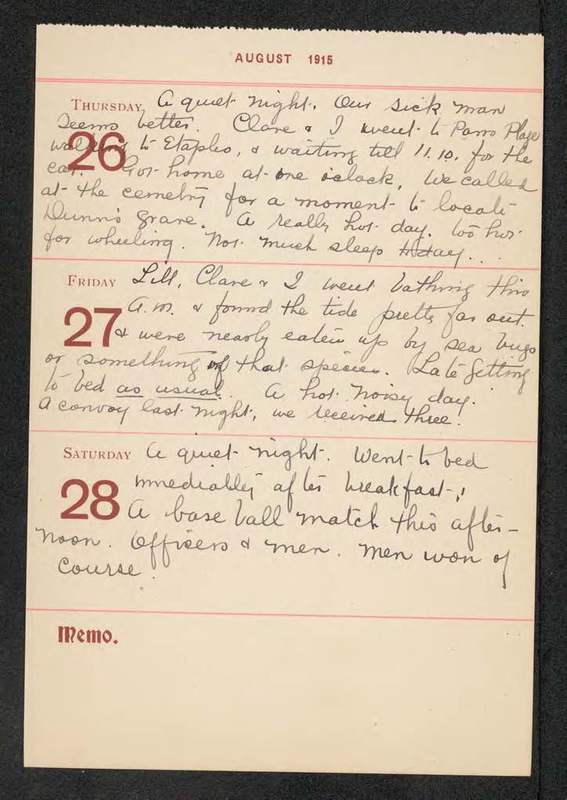 AUGUST 1915
THURSDAY A quiet night. Our sick man
26 seems better. Clare & I went to Paris Plage
walking to Etaples, & waiting till 11.10. for the
car. Got home at one o'clock. We called
at the cemetry for a moment to locate
Dunn's grave. A really hot day. too hot
for wheeling. Not much sleep today...
FRIDAY Lill, Clare & I went bathing this
27 a.m. & found the tide pretty far out.
& were nearly eaten up by sea bugs
or something of that species. Late getting
to bed as usual. A hot noisy day.
A convoy last night, we received three.
SATURDAY A quiet night. Went to bed
28 immediately after breakfast.
A base ball match this after-
noon. Officers & men. Men won of
course.
Memo.